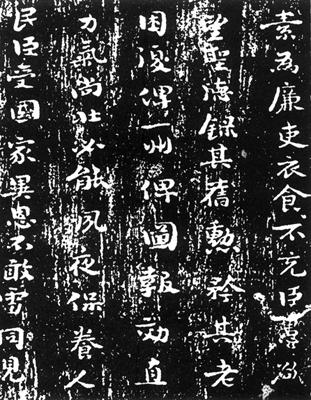 素為廉吏衣食不充臣愚欲
望聖德錄其舊勳矜其老
困復俾一州俾圖報効直
力氣尚壯必能夙夜保養人
民臣受國家異恩不敢雷同見